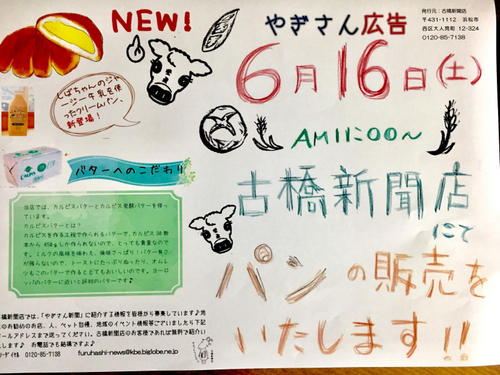 NEW!
やぎさん広告
発行元：古橋新聞店
〒431-1112 浜松市
西区大人見町 12-324
0120-85-7138
6月16日(土)
AM11:00〜
古橋新聞店
にて
パンの販売を
いたします!!
しばちゃんのジャ
ージー牛乳を使
ったクリームパン、
新登場!
バターへのこだわり
当店では、カルピスバターとカルピス発酵バターを使っ
ています。
カルピスバターとは？
カルピスを作る工程で作られるバターで、カルピス
本から 450g しか作られないので、とっても貴重なので
す。ミルクの風味を味わえ、後味さっぱり！バター臭さ
が残らないので、トーストにたっぷりぬったり、オムレ
ツもこのバターで作るととてもおいしいのです。ヨーロ
ッパのバターに近いと評判のバターです♪
橋新聞店では、「やぎさん新聞」に紹介する情報を皆様から募集しています♪地
のお勧めのお店、人、ペット自慢、地域のイベント情報等ございましたら下記
ールアドレスまで送ってください。古橋新聞店のお客様であれば無料で紹介
します♪ お電話でも結構です♪
リーダイヤル 0120-85-7138 furuhashi-news@kbe.biglobe.ne.jp